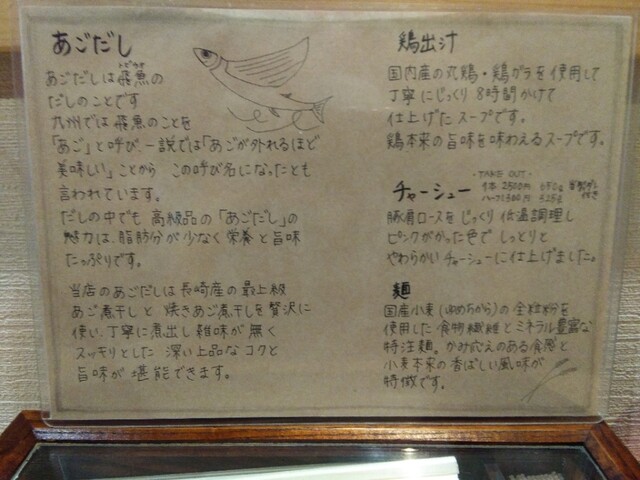 あごだし
トビウオ
あごだしは飛魚の
だしのことです
九州では飛魚のことを
「あご」と呼び、一説では「あごが外れるほど
美味しい」ことから この呼び名になったとも
言われています。
だしの中でも 高級品の「あごだし」の
魅力は、脂肪分が少なく栄養と旨味
たっぷりです。
当店のあごだしは長崎産の最上級
あご煮干しと焼きあご煮干しを贅沢に
使い、丁寧に煮出し雑味が無く
スッキリとした 深い上品なコクと
旨味が堪能できます。
鶏出汁
国内産の丸鶏・鶏ガラを使用して
丁寧にじっくり8時間かけて
仕上げたスープです。
鶏本来の旨味を味わえるスープです。
- TAKE OUT -
チャーシュー
1本 2500円 650g
ハーフ1300円 325g
付き
豚肩ロースをじっくり低温調理し
ピンクがかった色でしっとりと
やわらかいチャーシューに仕上げました。
麺
国産小麦(ゆめちから)の全粒粉を
使用した食物繊維とミネラル豊富な
特注麺。かみ応えのある食感と
小麦本来の香ばしい風味が
特徴です。